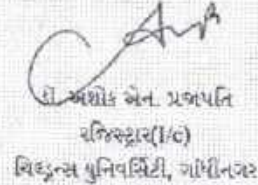 ડૉ. અશોક એન. પ્રજાપતિ
રજિસ્ટ્રાર(I/c)
ચિલ્ડ્રન્સ યુનિવર્સિટી, ગાંધીનગર